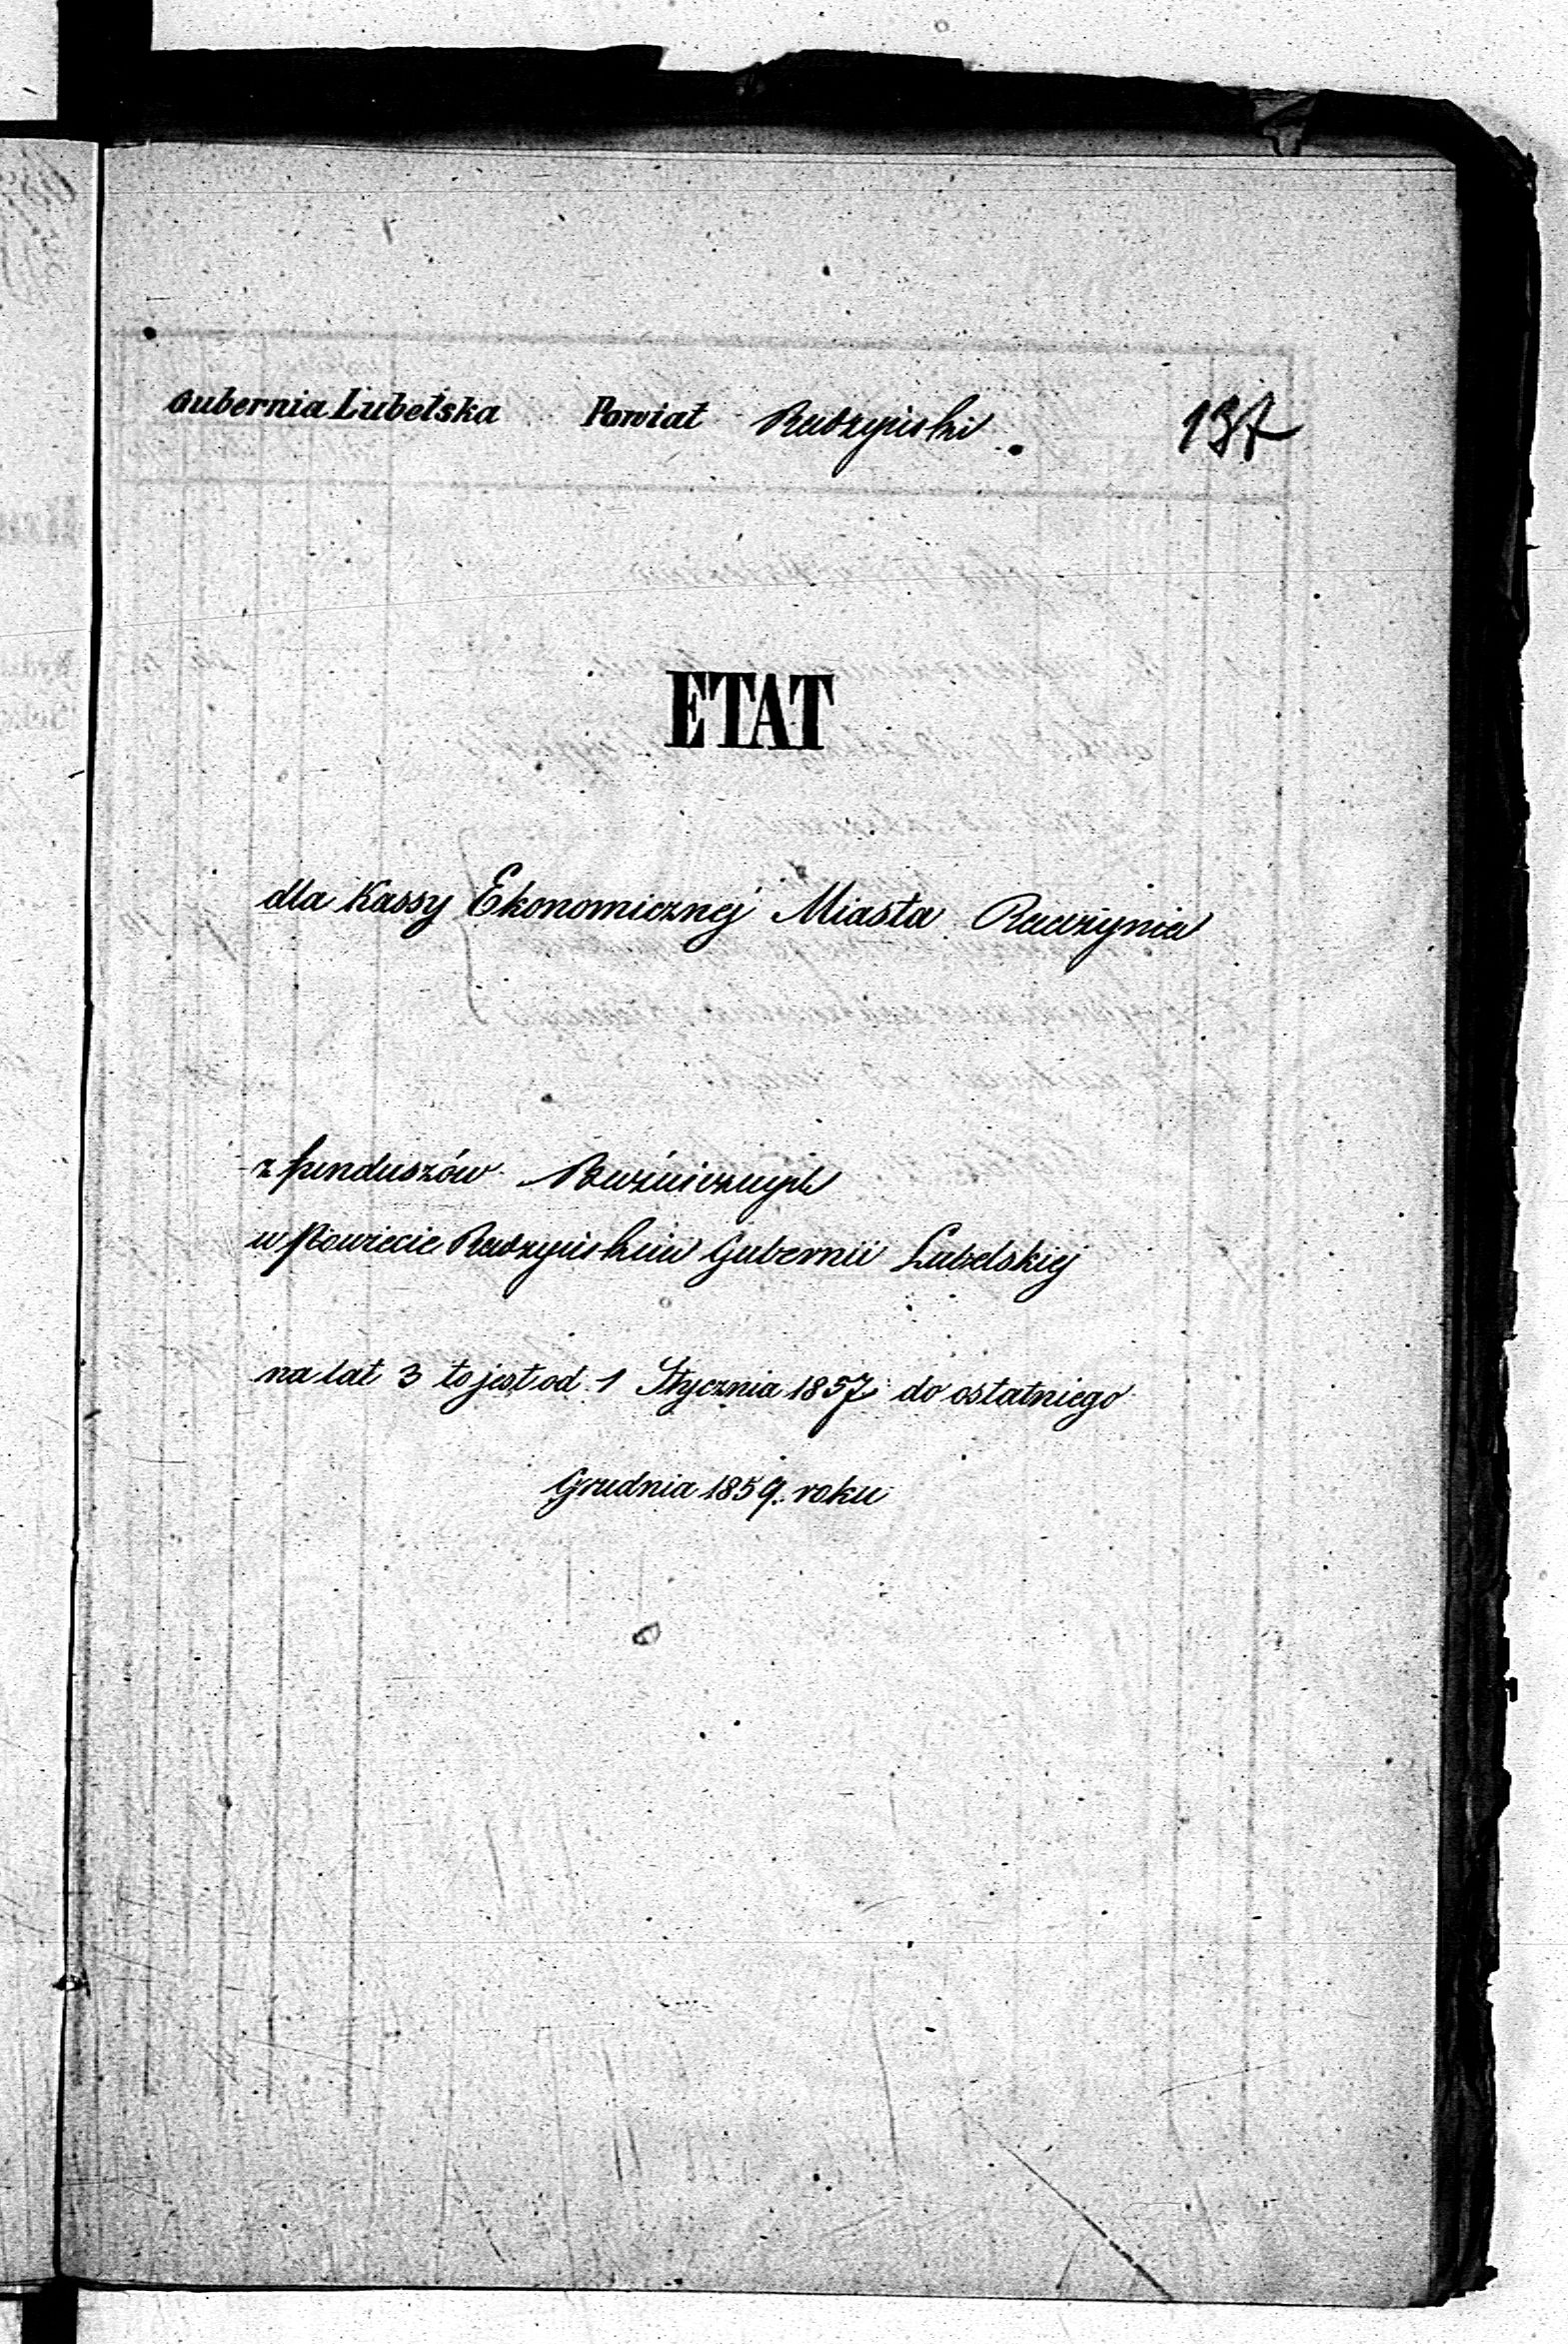 Gubernia Lubelska Powiat Radzyński 137
ETAT
dla Kassy Ekonomicznej Miasta Radzynia
z funduszów Bużnicznych
w Powiecie Radzyńskim Gubernii Lubelskiej
na lat 3 to jest od 1 Stycznia 1857 do ostatniego
Grudnia 1859. roku